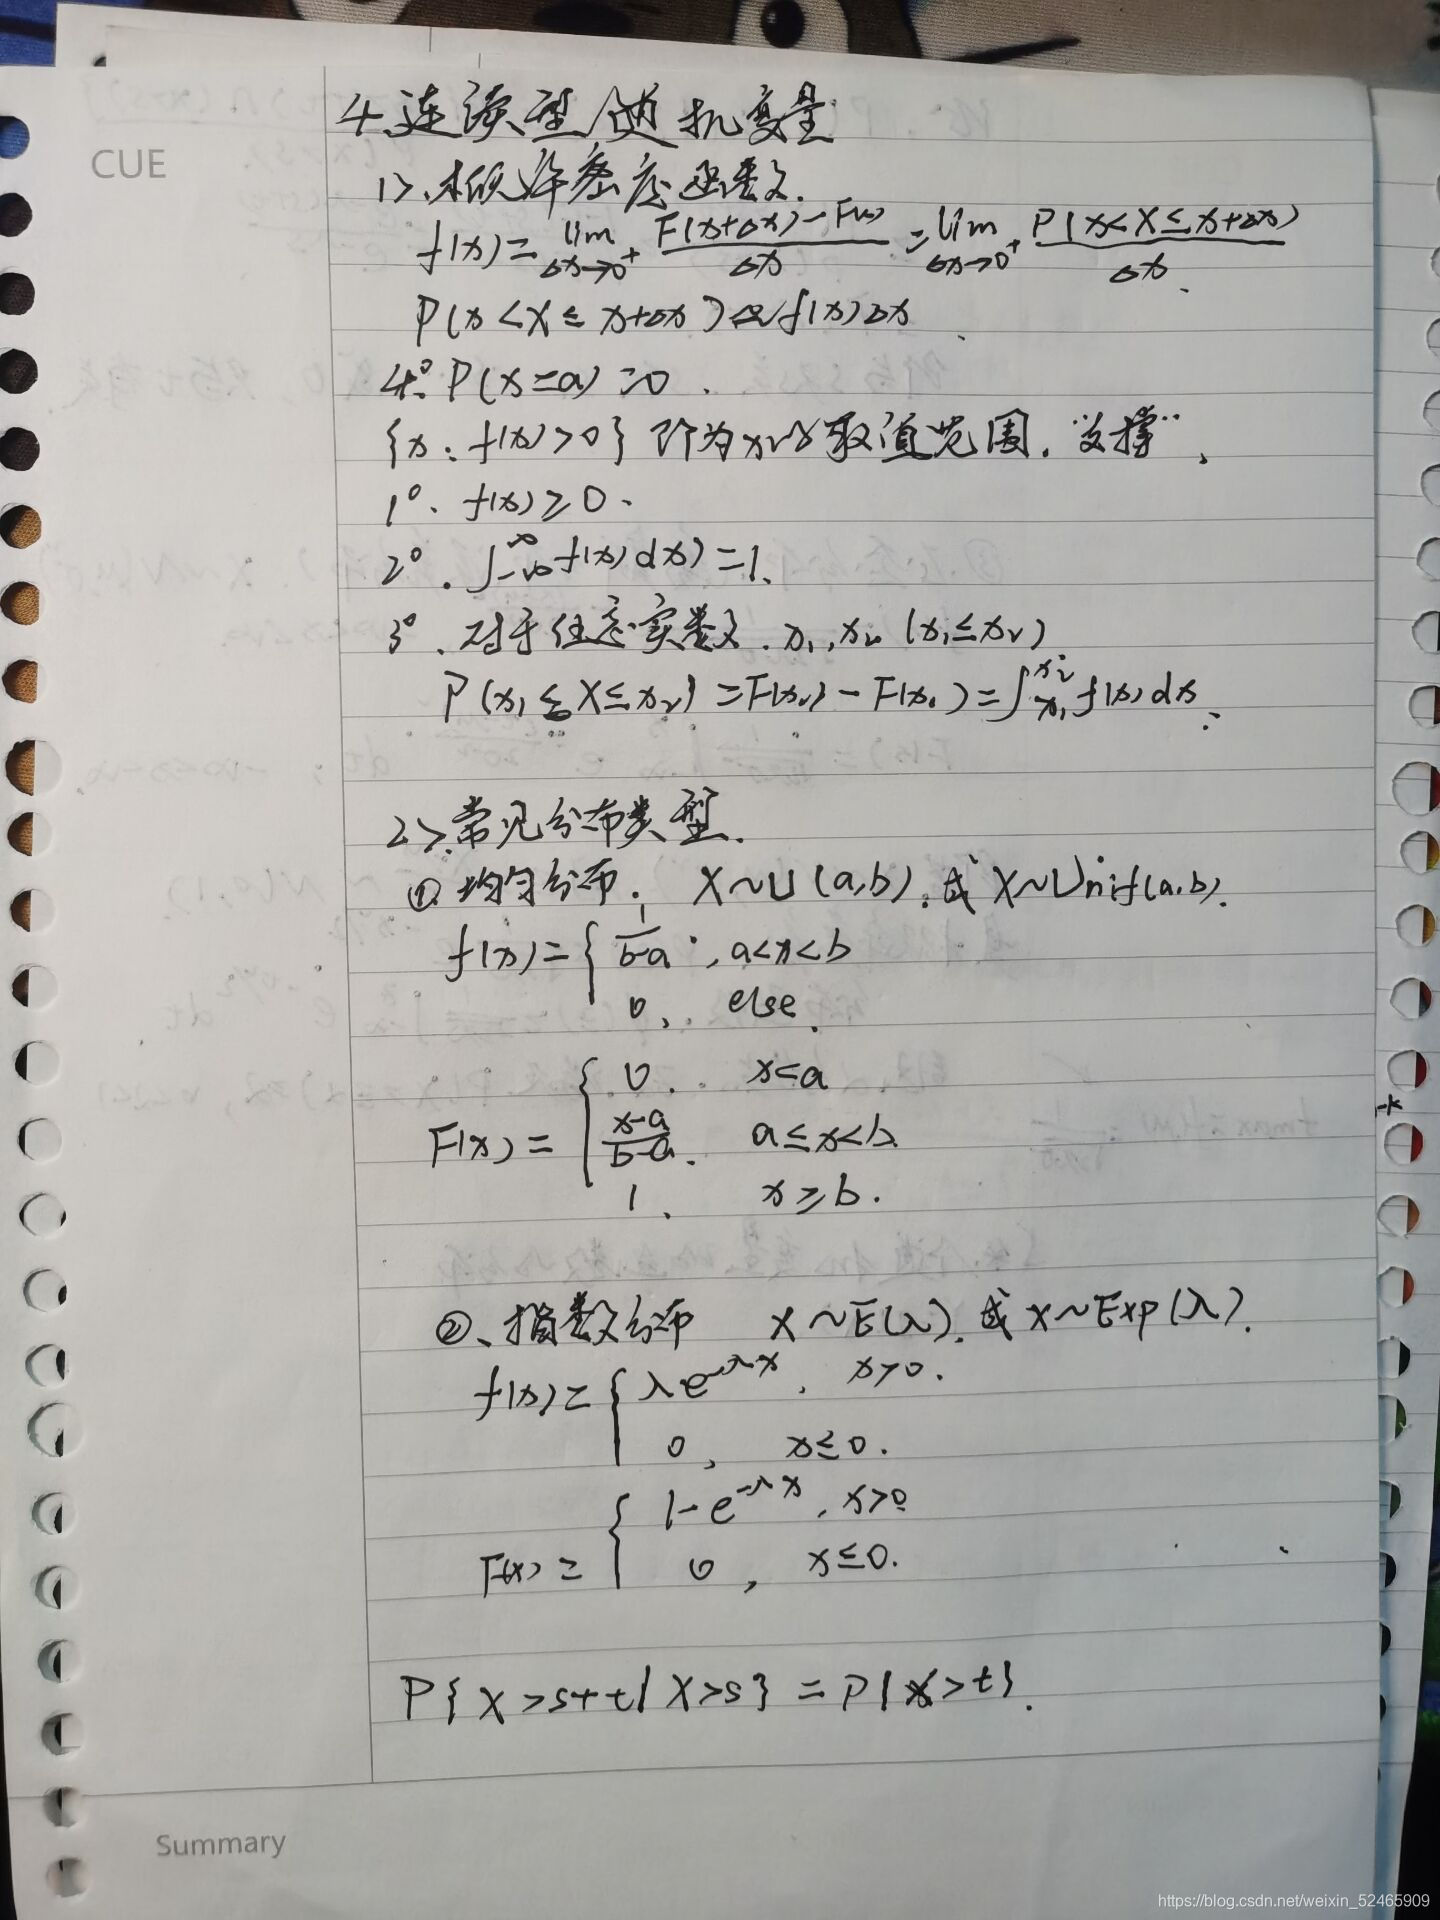 4.连续型随机变量
CUE
1>.概率密度函数.
f(x)=lim Δx→0⁺ (F(x+Δx)-F(x))/Δx = lim Δx→0⁺ P(x<X≤x+Δx)/Δx.
P(x<X≤x+Δx)≈f(x)Δx.
4°. P(x=a)=0.
{x: f(x)>0}即为x的取值范围."支撑",
1°. f(x)≥0.
2°. ∫_{-∞}^{∞}f(x)dx)=1.
3°.对于任意实数.x₁,x₂ (x₁≤x₂)
P(x₁≤X≤x₂)=F(x₂)-F(x₁)=∫_{x₁}^{x₂}f(x)dx.
2>.常见分布类型.
①.均匀分布. X~U(a,b).或X~Unif(a,b).
f(x)={ 1/(b-a), a<x<b
0, else.
{ 0. x<a
F(x)= (x-a)/(b-a). a≤x<b
1. x≥b.
②、指数分布 X~E(λ).或X~Exp(λ).
f(x)={ λe^{-λx}, x>0.
0, x≤0.
{ 1-e^{-λx}, x>0
F(x)= 0, x≤0.
P{X>s+t|X>s}=P{X>t}.
Summary
https://blog.csdn.net/weixin_52465909